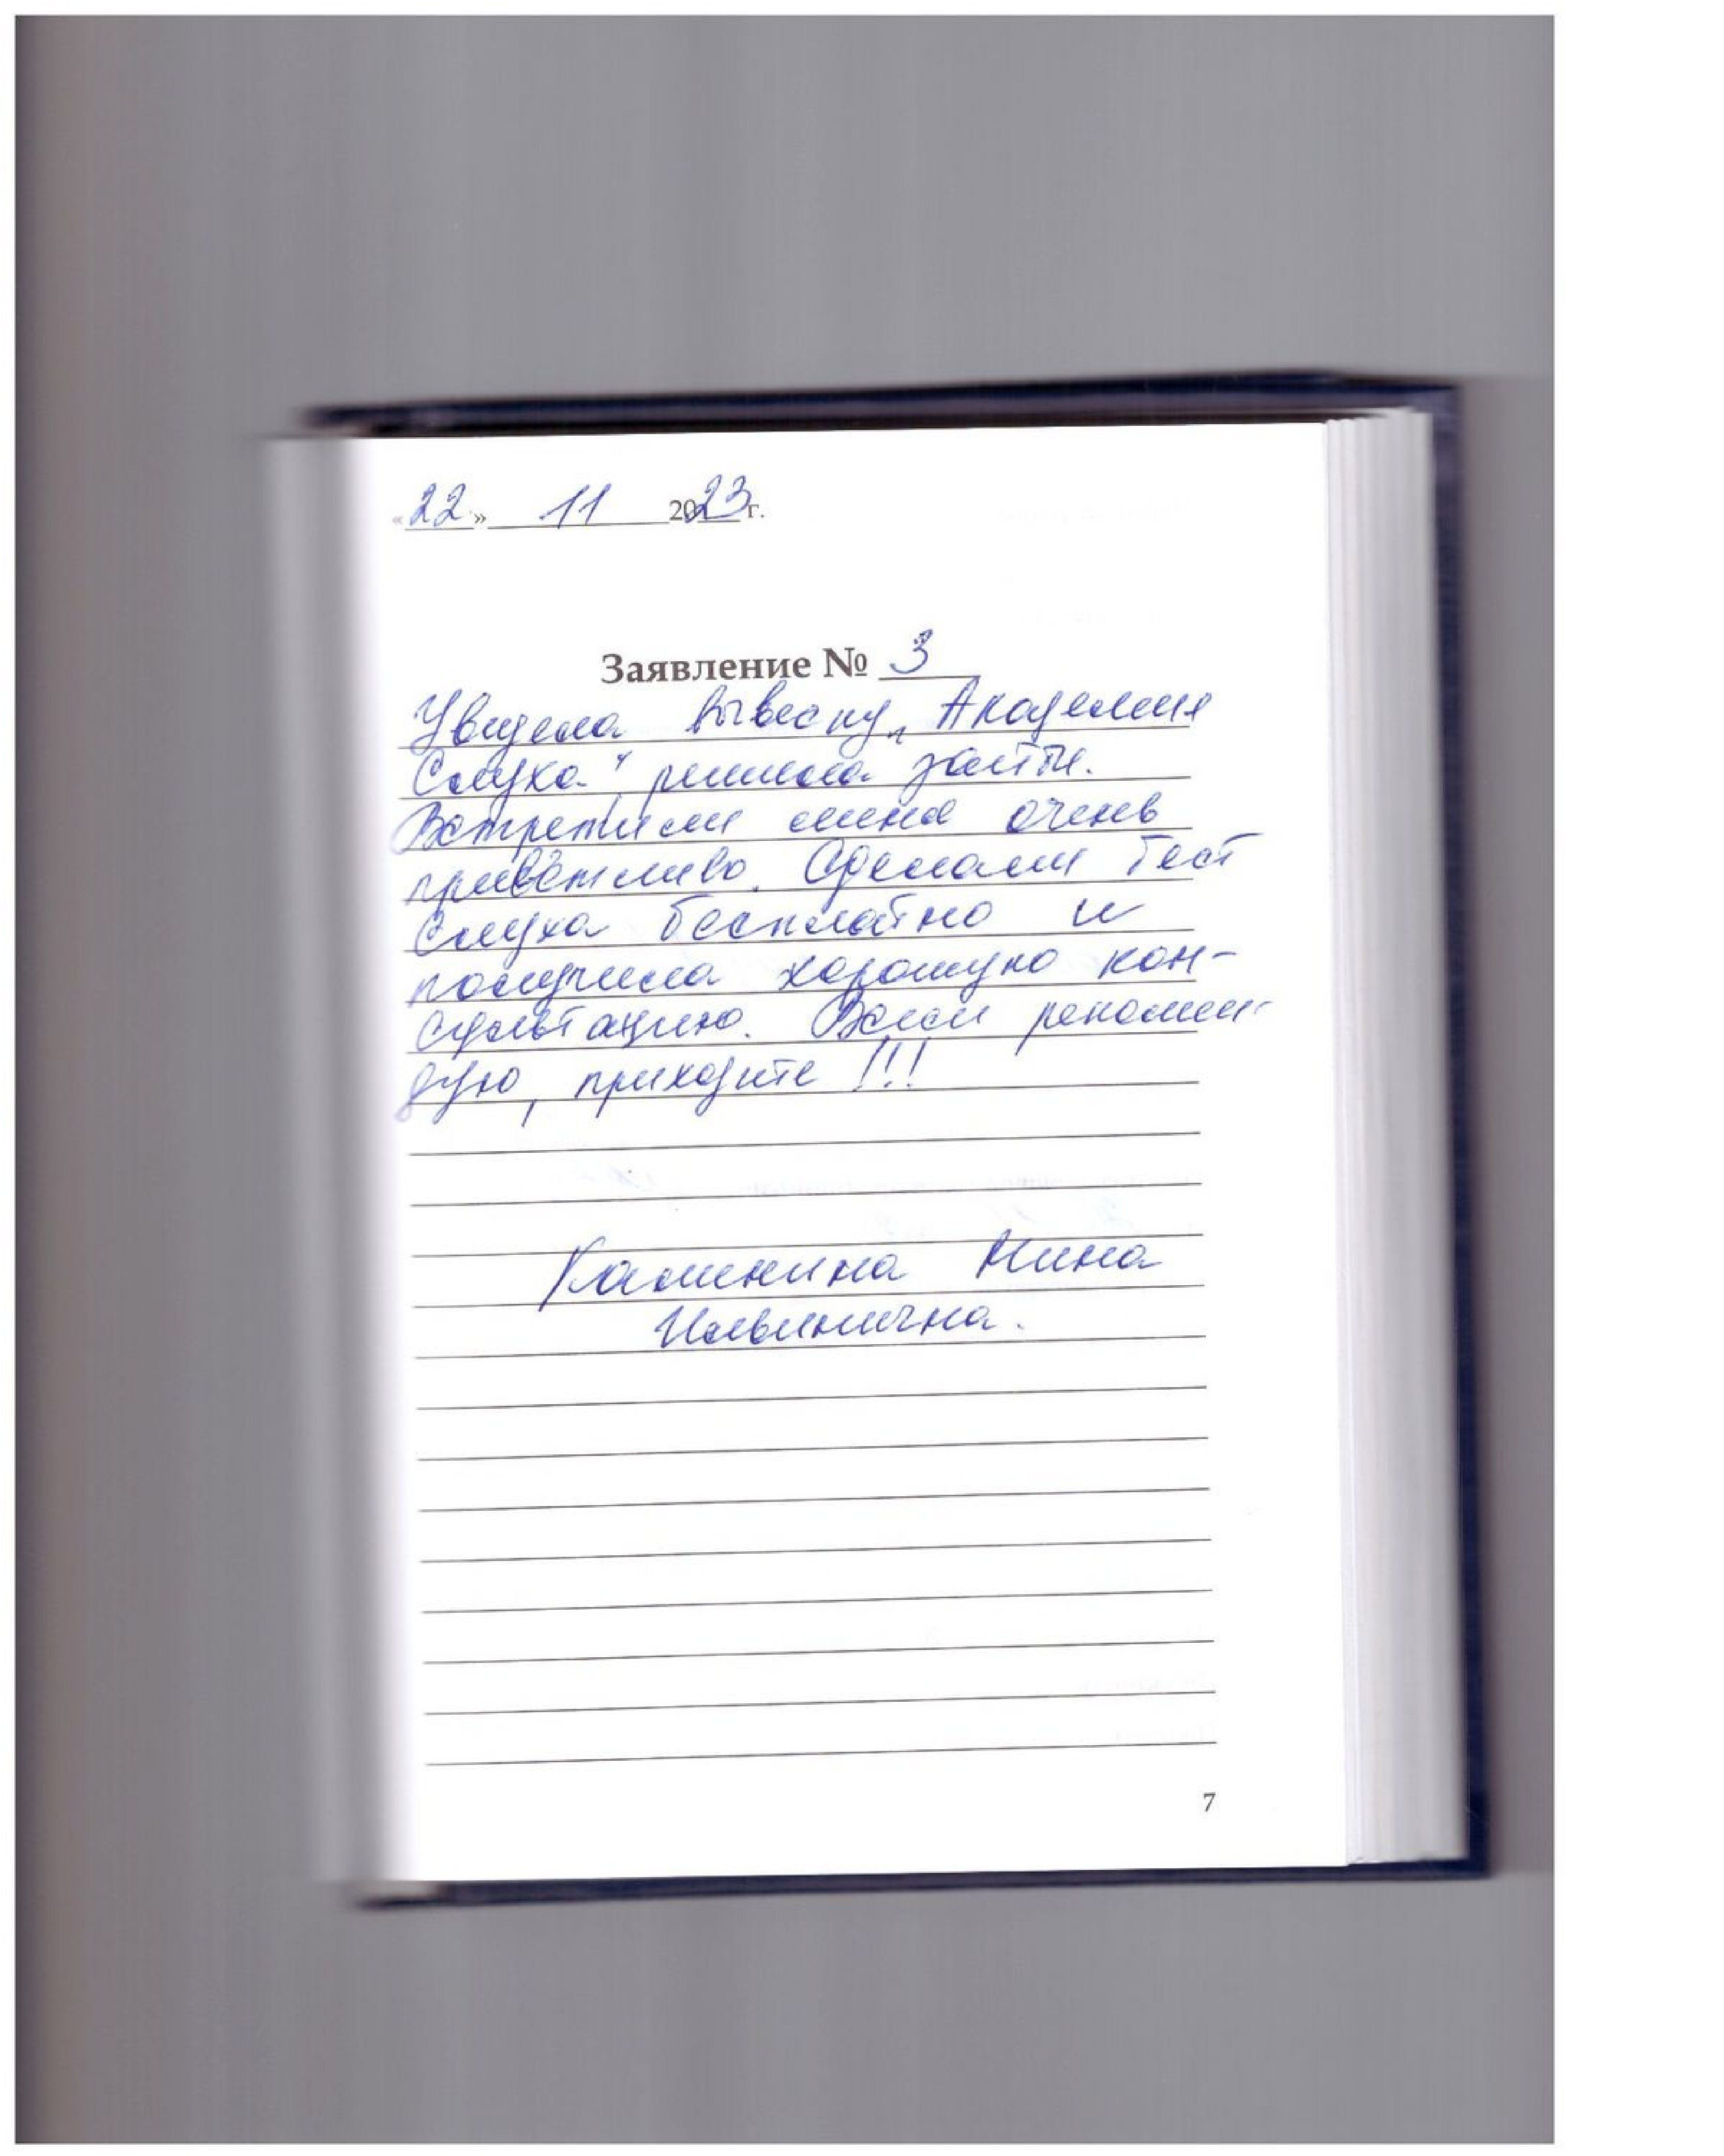 «22» 11 2023 г.
Заявление № 3
Увидела вывеску „Академия
Слуха", решила зайти.
Встретили меня очень
приветливо. Сделали тест
слуха бесплатно и
получила хорошую кон-
сультацию. Всем рекомен-
дую, приходите !!!
Нина
Ильинична.
7